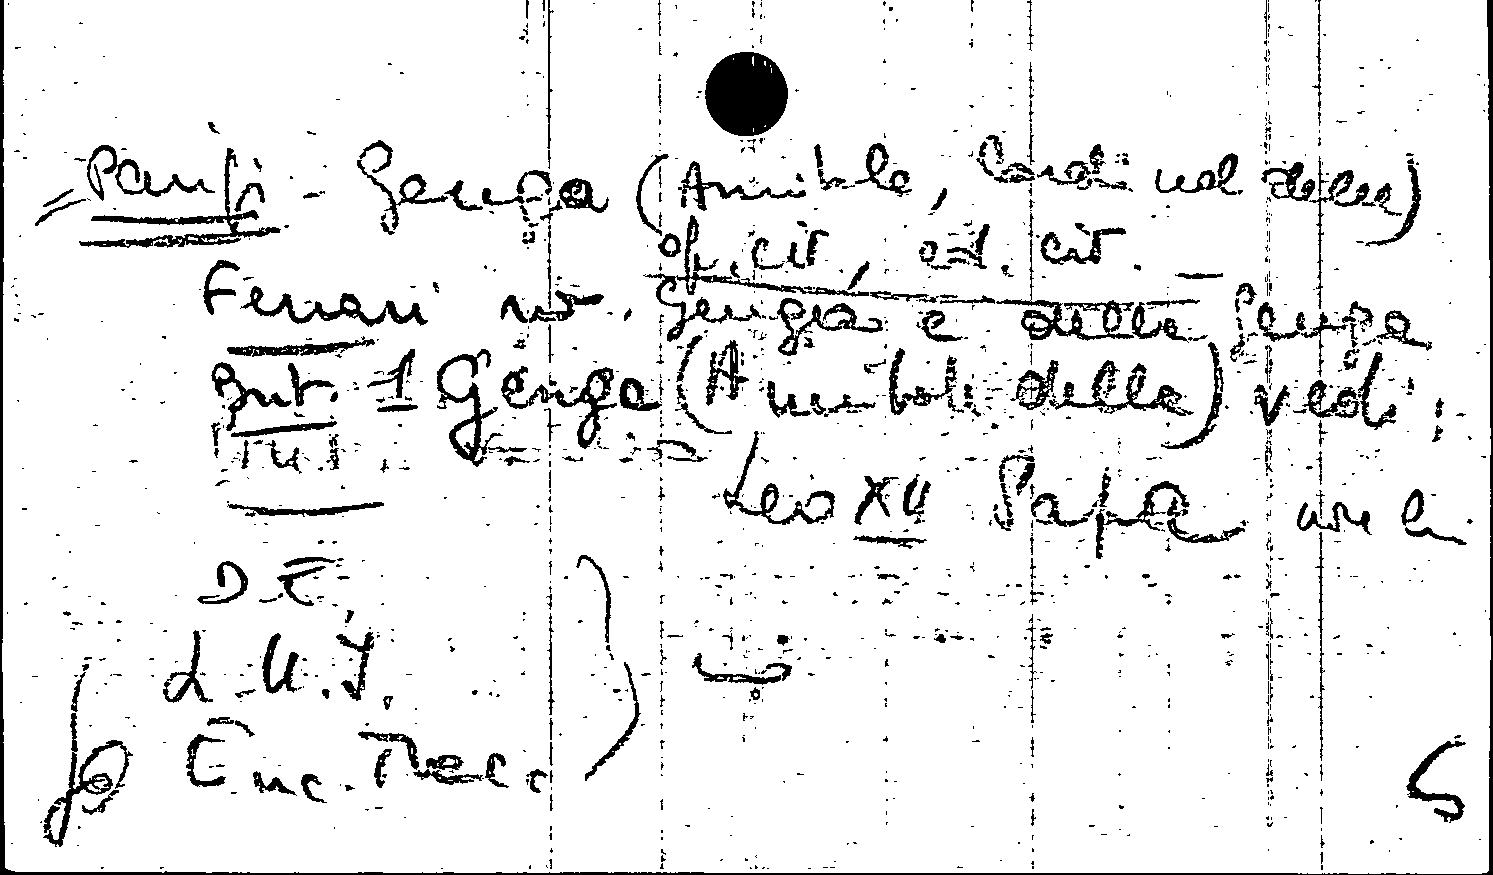 Panfi - Genga (Annibale, Cardinal della)
op. cit., ed. cit. —
Ferrari no. Genga e della Genga
But. 1 Genga (Annibale della) vedi:
Leo XII Papa
D.E.
L.U.I.
Enc. Trecc.
5